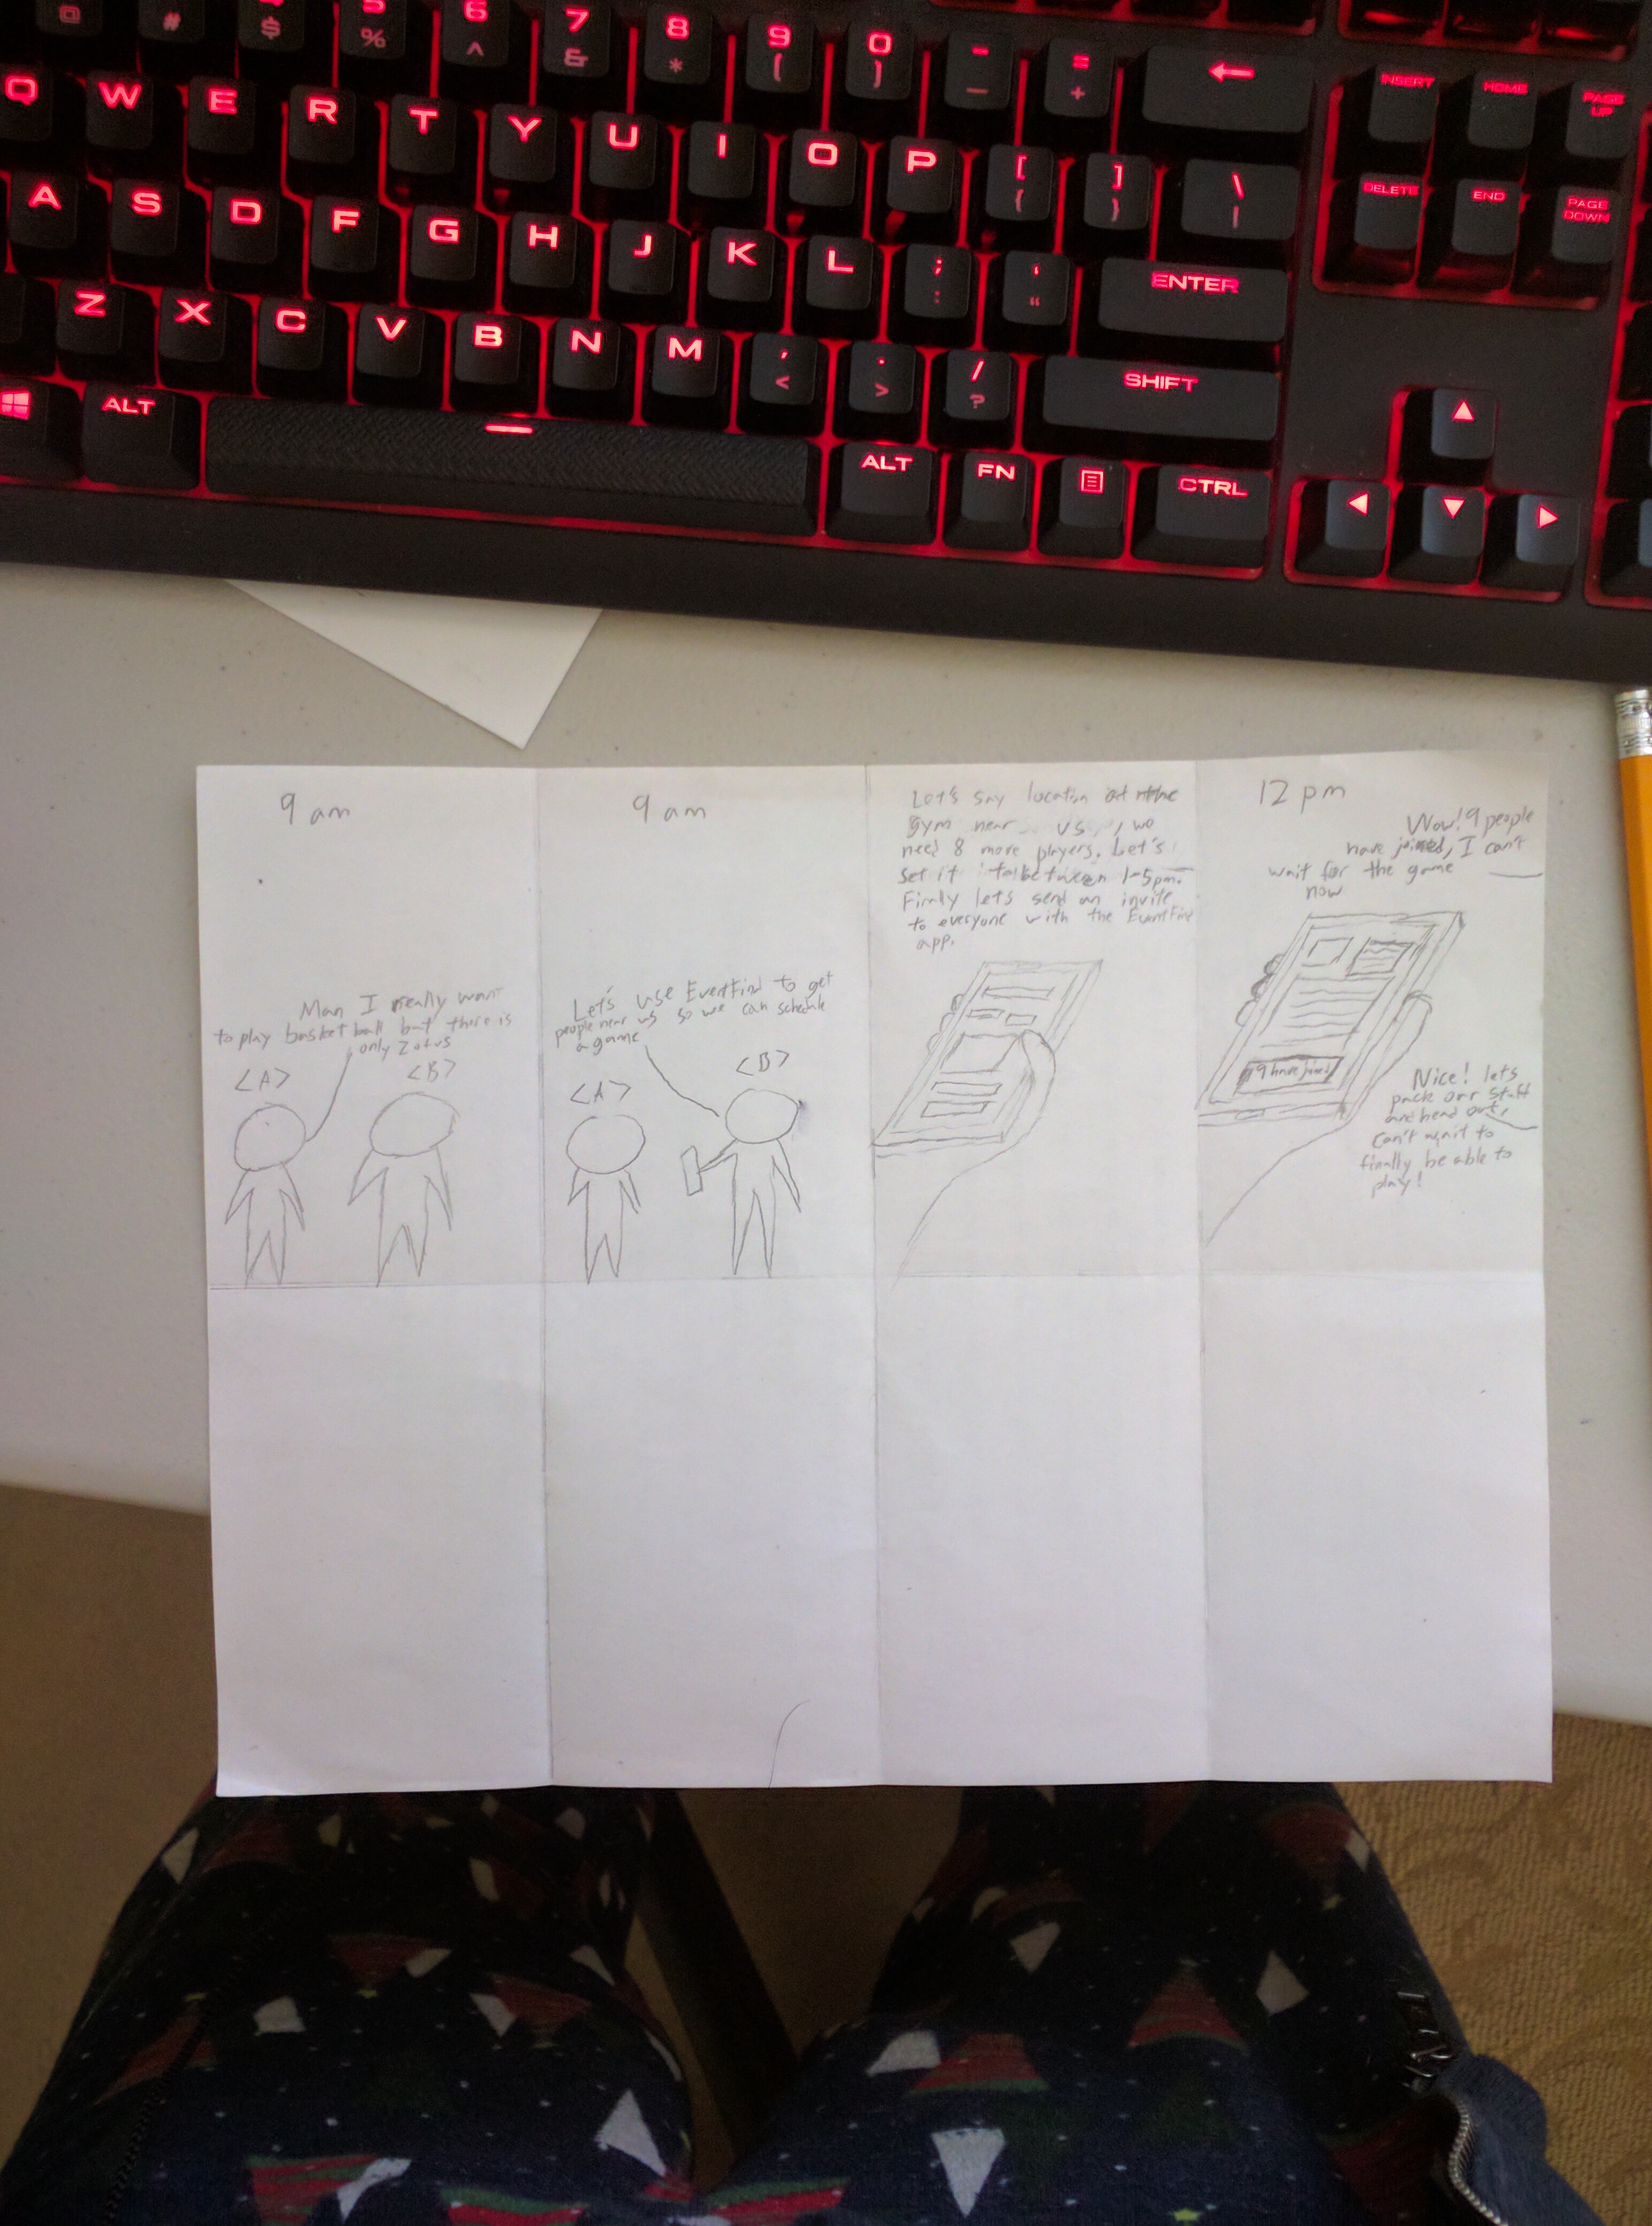 @ # $ 5 % 6 ^ 7 & 8 * 9 ( 0 ) - _ = +
INSERT HOME PAGE UP
Q W E R T Y U I O P [ { ] } \ |
DELETE END PAGE DOWN
A S D F G H J K L ; : ' " ENTER
Z X C V B N M , < . > / ? SHIFT
ALT ALT FN CTRL
9 am
Man I really want
to play basket ball but there is
only 2 of us
<A> <B>
9 am
Let's use EventFind to get
people near us so we can schedule
a game
<A> <B>
Let's say location at the
gym near us, we
need 8 more players. Let's
set it to between 1-5pm.
Finally let's send an invite
to everyone with the EventFind
app.
12 pm
Wow! 9 people
have joined, I can't
wait for the game
now
9 have joined
Nice! lets
pack our stuff
and head out,
Can't wait to
finally be able to
play!